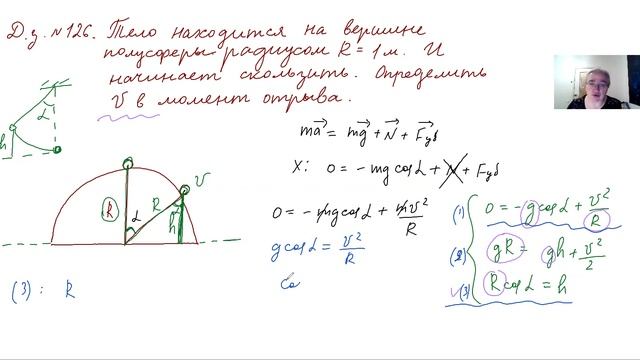 Д.з. №126. Тело находится на вершине
полусферы радиусом R = 1 м. И
начинает скользить. Определить
V в момент отрыва.
ma⃗ = mg⃗ + N⃗ + F⃗уб
x: 0 = -mg cosα + N + Fуб
0 = -mg cosα + mv²/R
g cosα = v²/R
Co
(1) 0 = -g cosα + v²/R
(2) gR = gh + v²/2
(3) R cosα = h
h α
R α R h v
(3): R